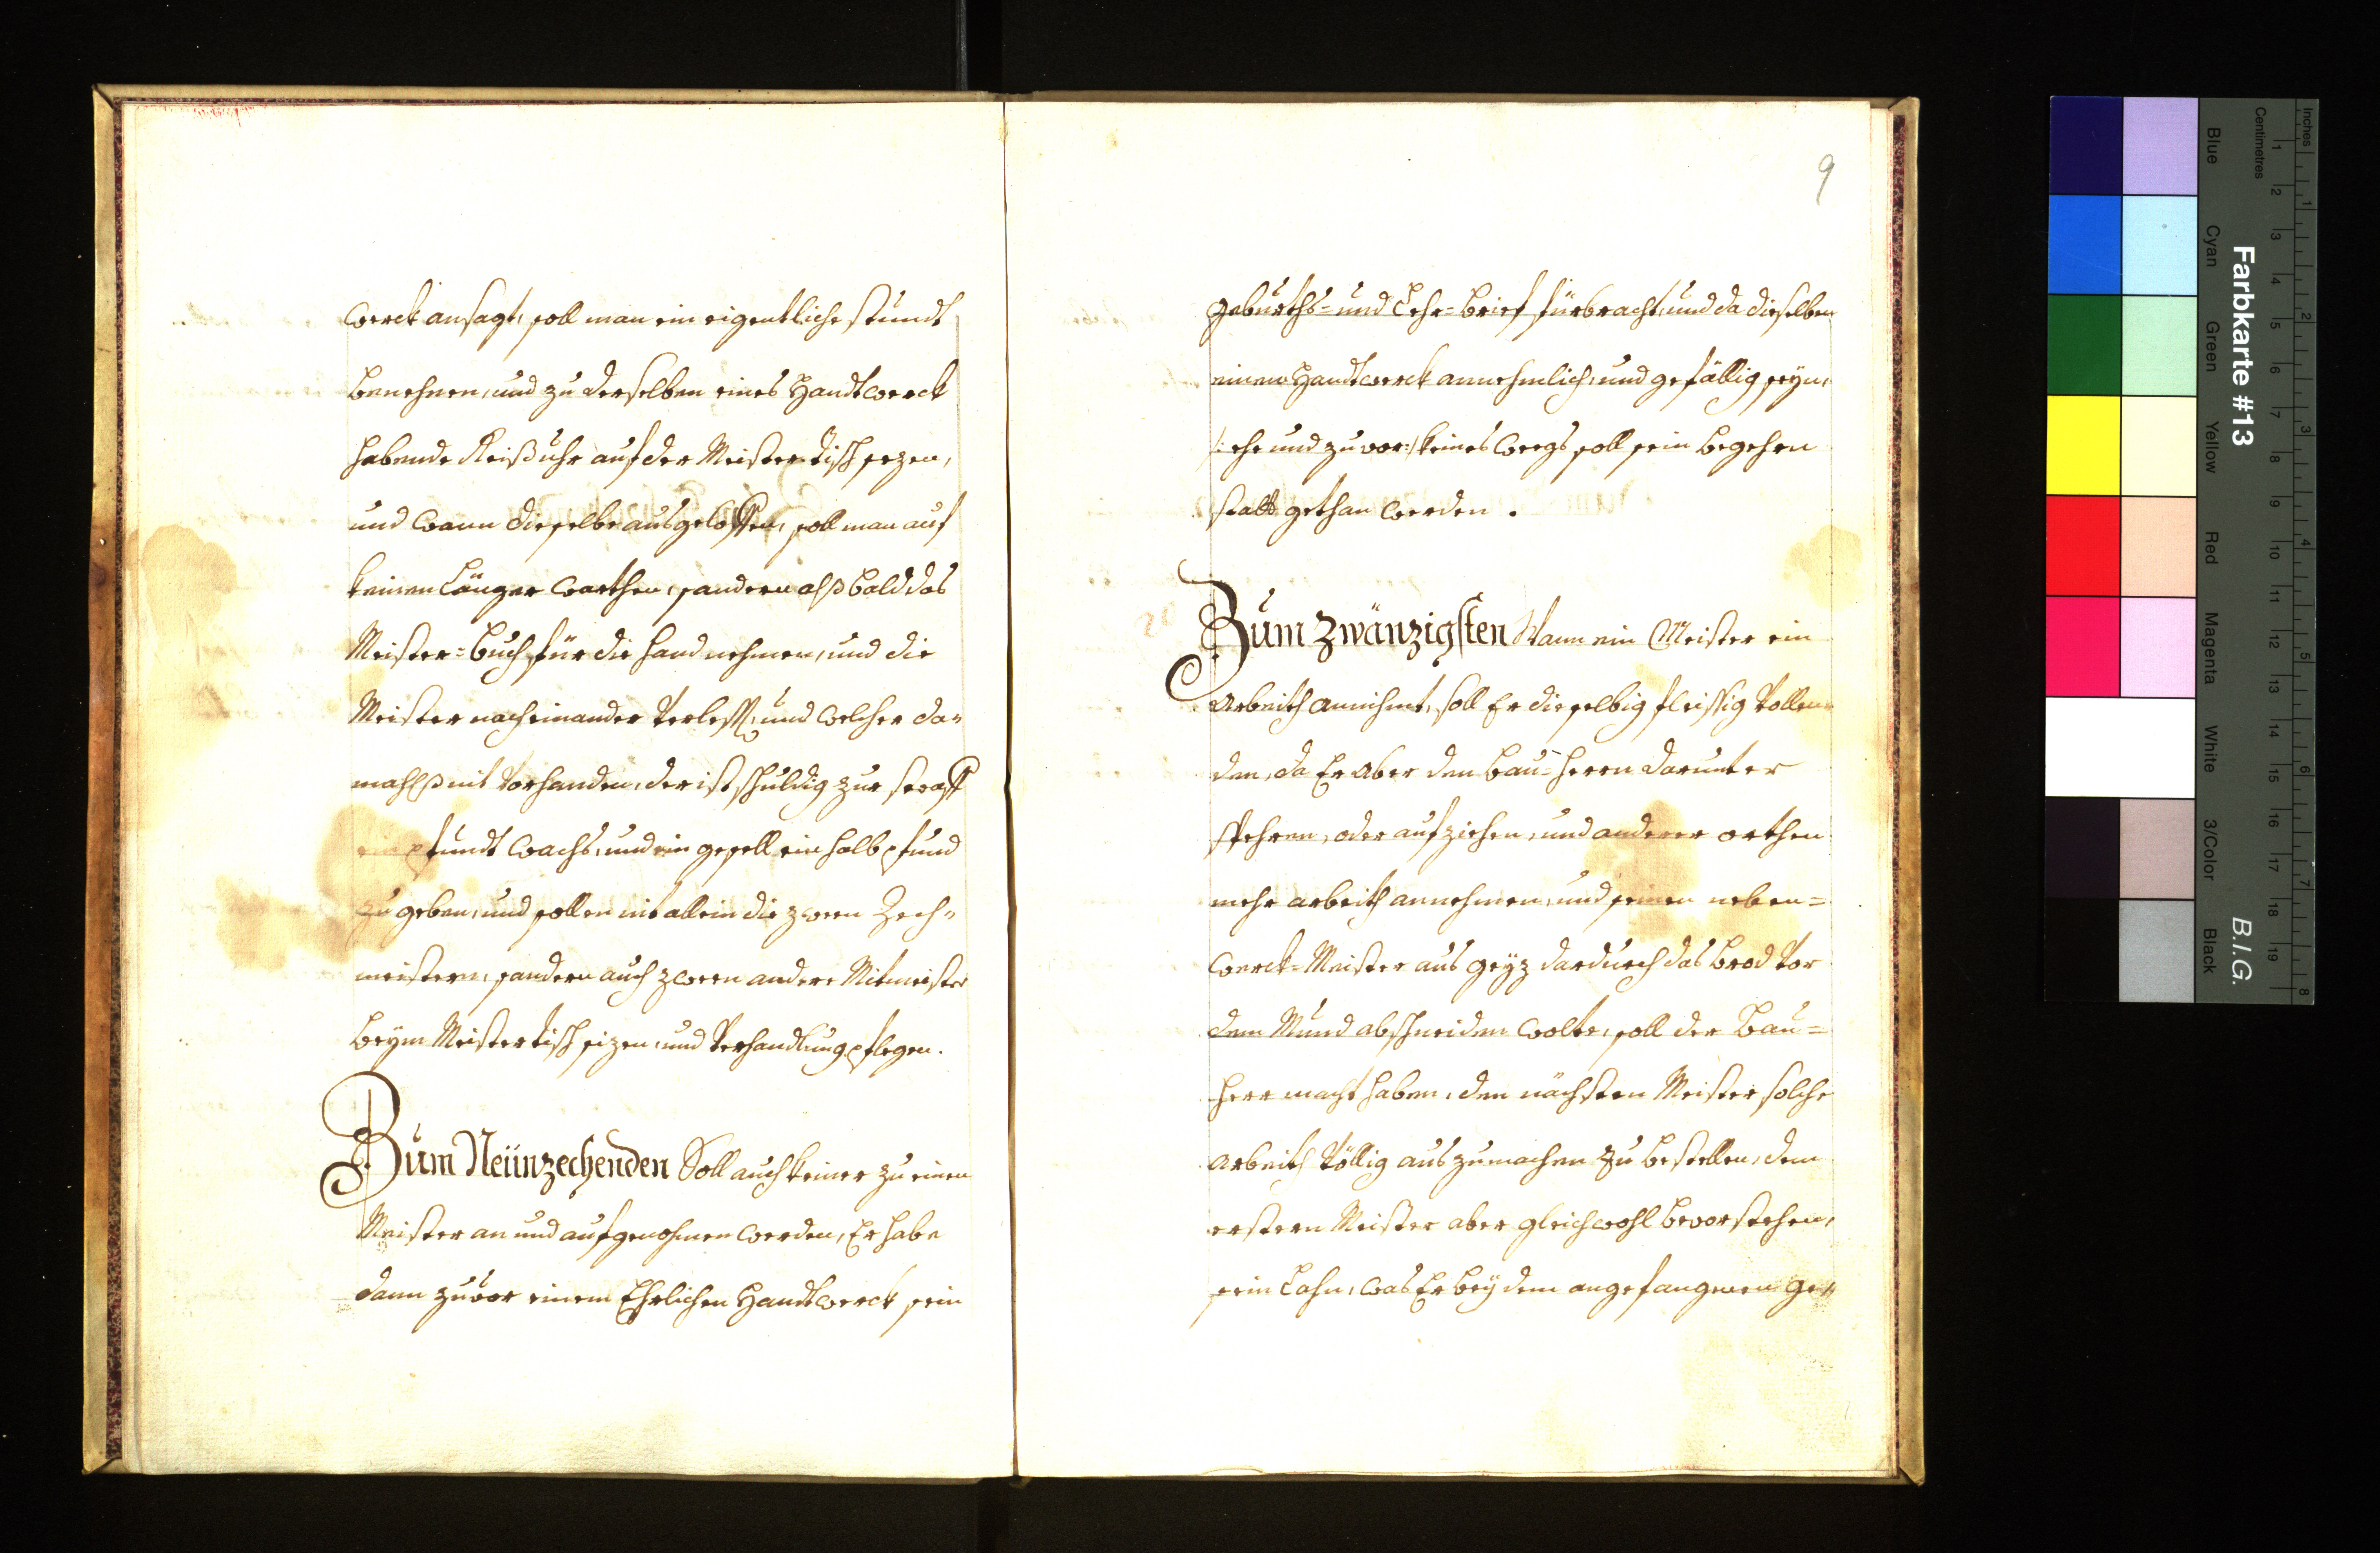 werck ansagt, soll man ein eigentliche stundt
benehnen, und zu derselben eines Handtwerck
habende Reißuhr auf der Meistertisch sezen,
und wann dieselbe ausgeloffen, soll man auf
keinen länger warthen, sondern alßbald das
Meister=buch für die hand nehmen, und die
Meister nacheinander verless, und welcher da=
mahlß nit vorhanden, der ist schuldig zur straff
ein pfundt wachs, und ein gesell ein halb pfund
zu geben, und sollen nit allein die zween Zech=
meistern, sondern auch zween andere Mitmeister
beym Meistertisch sizen, und verhandlung pflegen.
Zum Neünzechenden Soll auch keiner zu einen
Meister an und aufgenohmen werden, Er habe
dann zuvor einem Ehrlichen Handtwerck sein
9
geburths= und Lehr=brief fürbracht, und da dieselben
einem Handtwerck annehmlich, und gefällig seyn,
/: ehe und zuvor:/ keines weegs soll sein begehrn
statt gethan werden.
Zum Zwänzigsten Wann ein Meister ein
Arbeith annihmt, soll Er dieselbig fleissig vollen=
den, da Er aber den bau=herrn darunter
spehren, oder aufziehen, und anderer orthen
mehr arbeith annehmen, und seinen neben=
werck=Meister aus geyz dardurch das brod vor
dem Mund abschneiden wolte, soll der Bau=
herr macht haben, den nächsten Meister solche
arbeith völlig auszumachen zu bestellen, dem
erstern Meister aber gleichwohl bevorstehen,
sein Lohn, was Er bey dem angefangenen ge=
Farbkarte #13
B.I.G.
Inches
Centimetres
Blue
Cyan
Green
Yellow
Red
Magenta
White
3/Color
Black
1 2 3 4 5 6 7 8 9 10 11 12 13 14 15 16 17 18 19
1 2 3 4 5 6 7 8